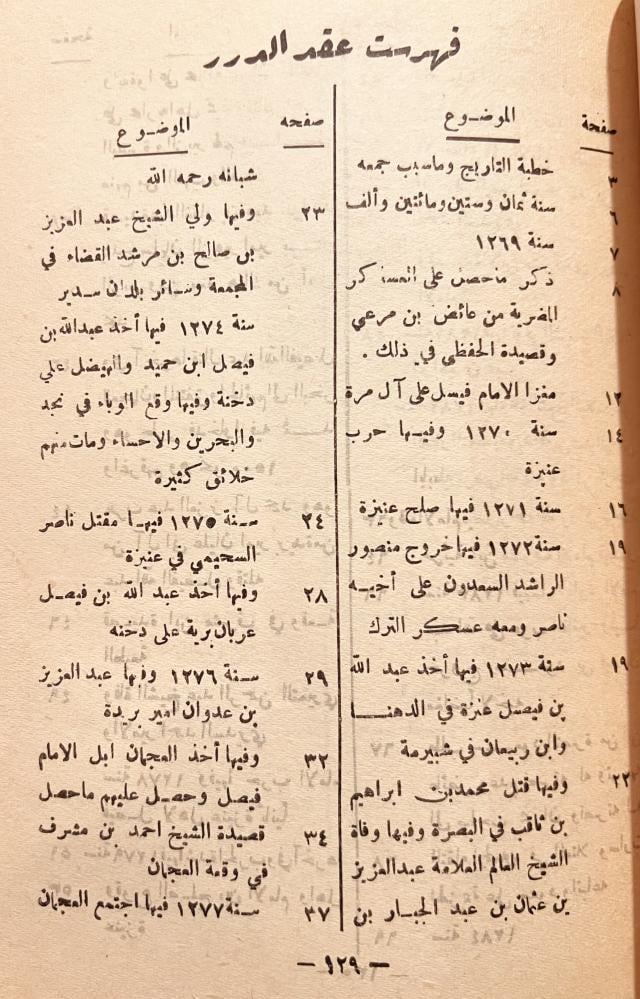 فهرست عقد الدرر
صفحة الموضوع
٣ خطبة التاريخ وماسبب جمعه
٦ سنة ثمان وستين ومائتين وألف
٧ سنة ١٢٦٩
٨ ذكر ماحصل على العساكر
المضرية من عائض بن مرعي
وقصيدة الحفظي في ذلك .
١٢ مغزا الامام فيسل على آل مرة
١٤ سنة ١٢٧٠ وفيها حرب
عنيزة
١٦ سنة ١٢٧١ فيها صلح عنيزة
١٩ سنة ١٢٧٢ فيها خروج منصور
الراشد السعدون على أخيه
ناصر ومعه عسكر الترك
١٩ سنة ١٢٧٣ فيها أخذ عبد الله
بن فيصل عنزة في الدهنا
وابن ربيعان في شبيرمة
٢٢ وفيها قتل محمد بن ابراهيم
بن ثاقب في البصرة وفيها وفاة
الشيخ العالم العلامة عبدالعزيز
بن عثمان بن عبد الجبار بن
صفحه الموضوع
شبانه رحمه الله
٢٣ وفيها ولي الشيخ عبد العزيز
بن صالح بن مرشد القضاء في
المجمعة وسائر بلدان سدير
سنة ١٢٧٤ فيها أخذ عبدالله بن
فيصل ابن حميد والهيضل علي
دخنة وفيها وقع الوباء في نجد
والبحرين والاحساء ومات منهم
خلائق كثيرة
٢٤ سنة ١٢٧٥ فيها مقتل ناصر
السحيمي في عنيزة
٢٨ وفيها أخذ عبد الله بن فيصل
عربان برية على دخنه
٢٩ سنة ١٢٧٦ وفيها عبد العزيز
بن عدوان امير بريدة
٣٢ وفيها أخذ العجمان ابل الامام
فيصل وحصل عليهم ماحصل
٣٤ قصيدة الشيخ احمد بن مشرف
في وقعة العجمان
٣٧ سنة ١٢٧٧ فيها اجتمع العجمان
— ١٢٩ —